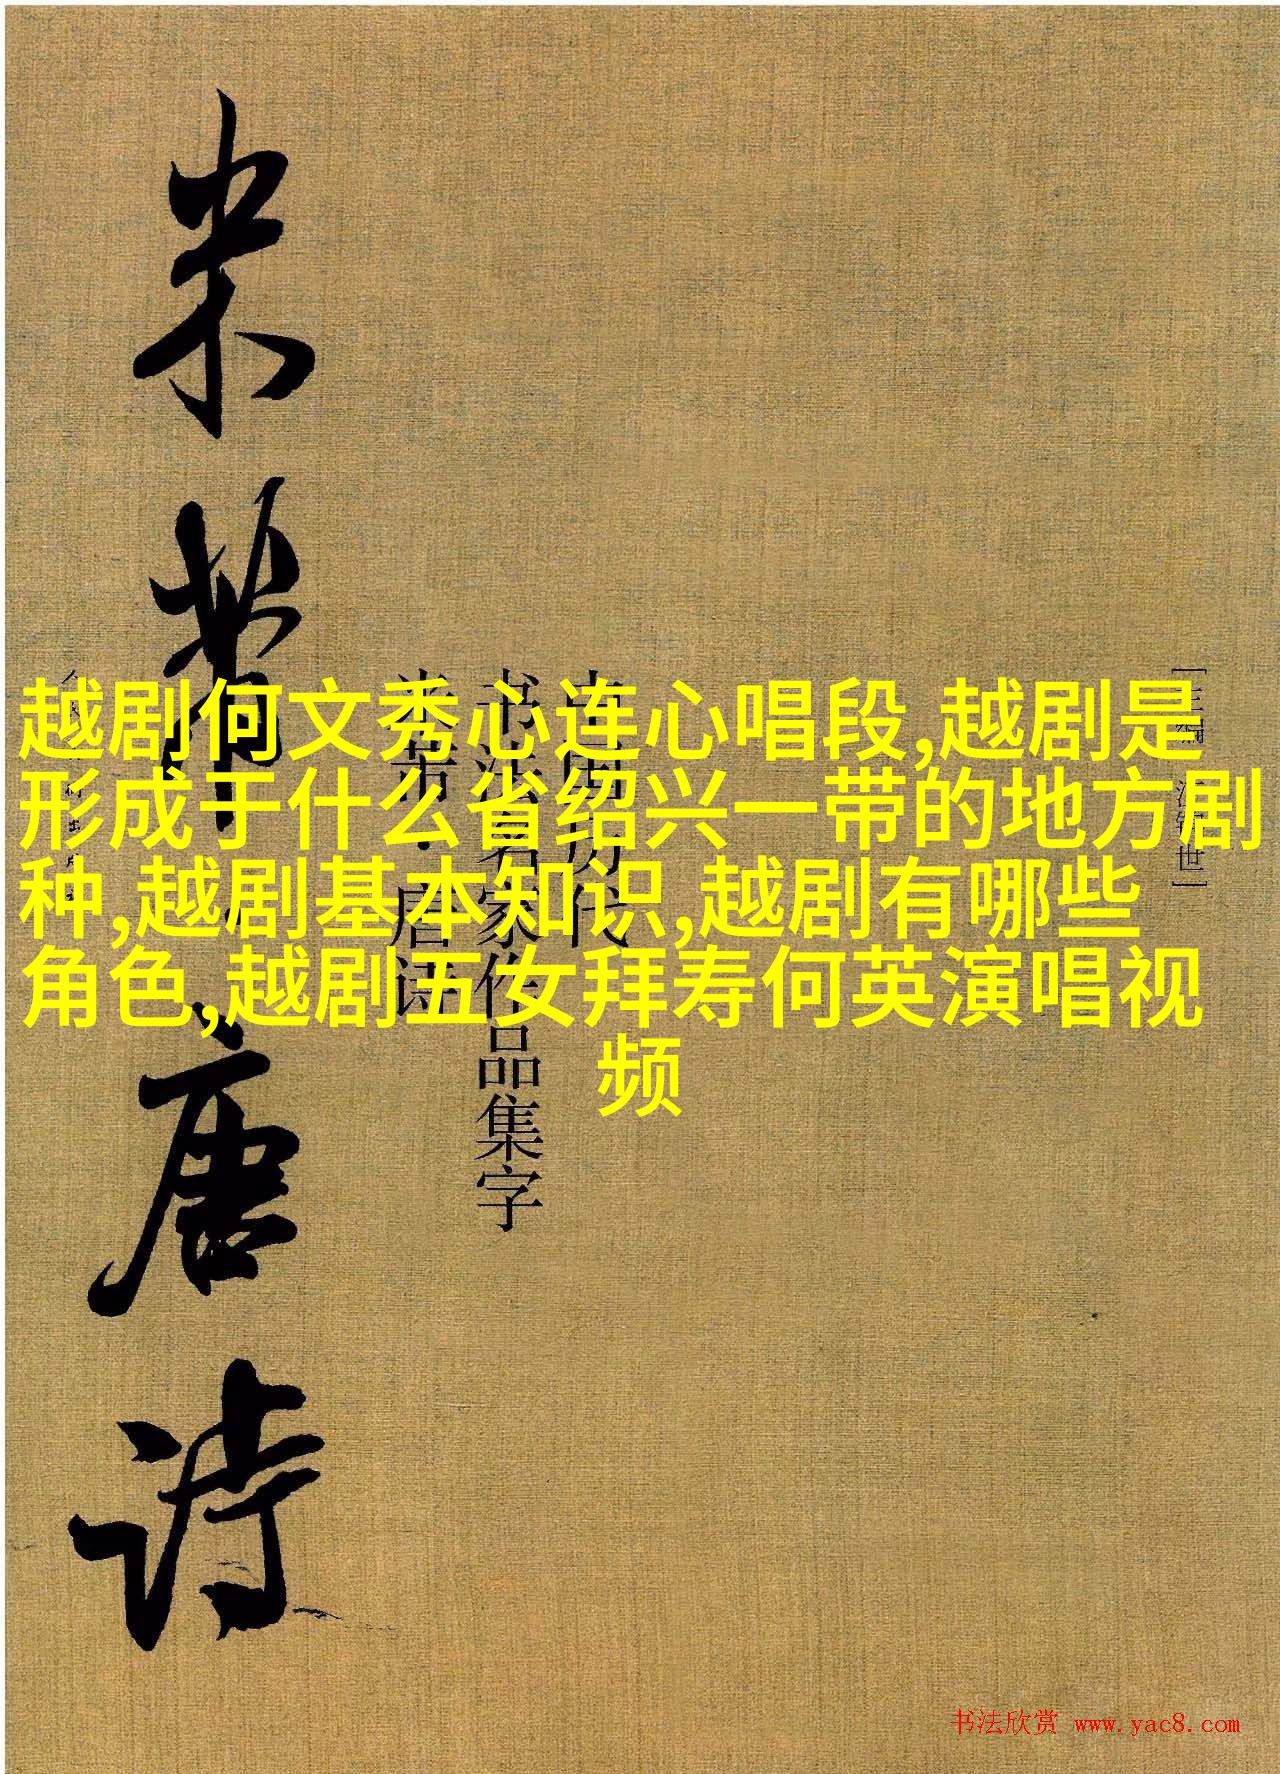 越剧何文秀心连心唱段,越剧是
形成于什么省绍兴一带的地方剧
种,越剧基本知识,越剧有哪些
角色,越剧五女拜寿何英演唱视
频
米芾·唐诗
中国历代
书法名家作品集字
米芾·唐诗
书法欣赏 www.yac8.com